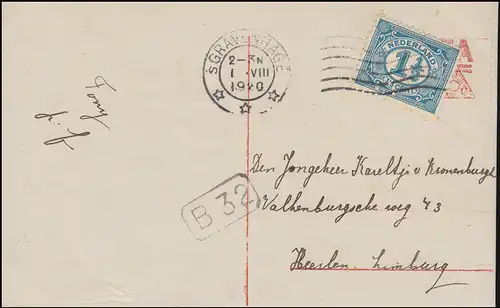 'SGRAVENHAGE
2-3N
1 VIII
1920
NEDERLAND
1½
CENT
Tony
B 32
Den Jongeheer Kareltje v Kronenburgh
Valkenburgsche weg 43
Heerlen. Limburg